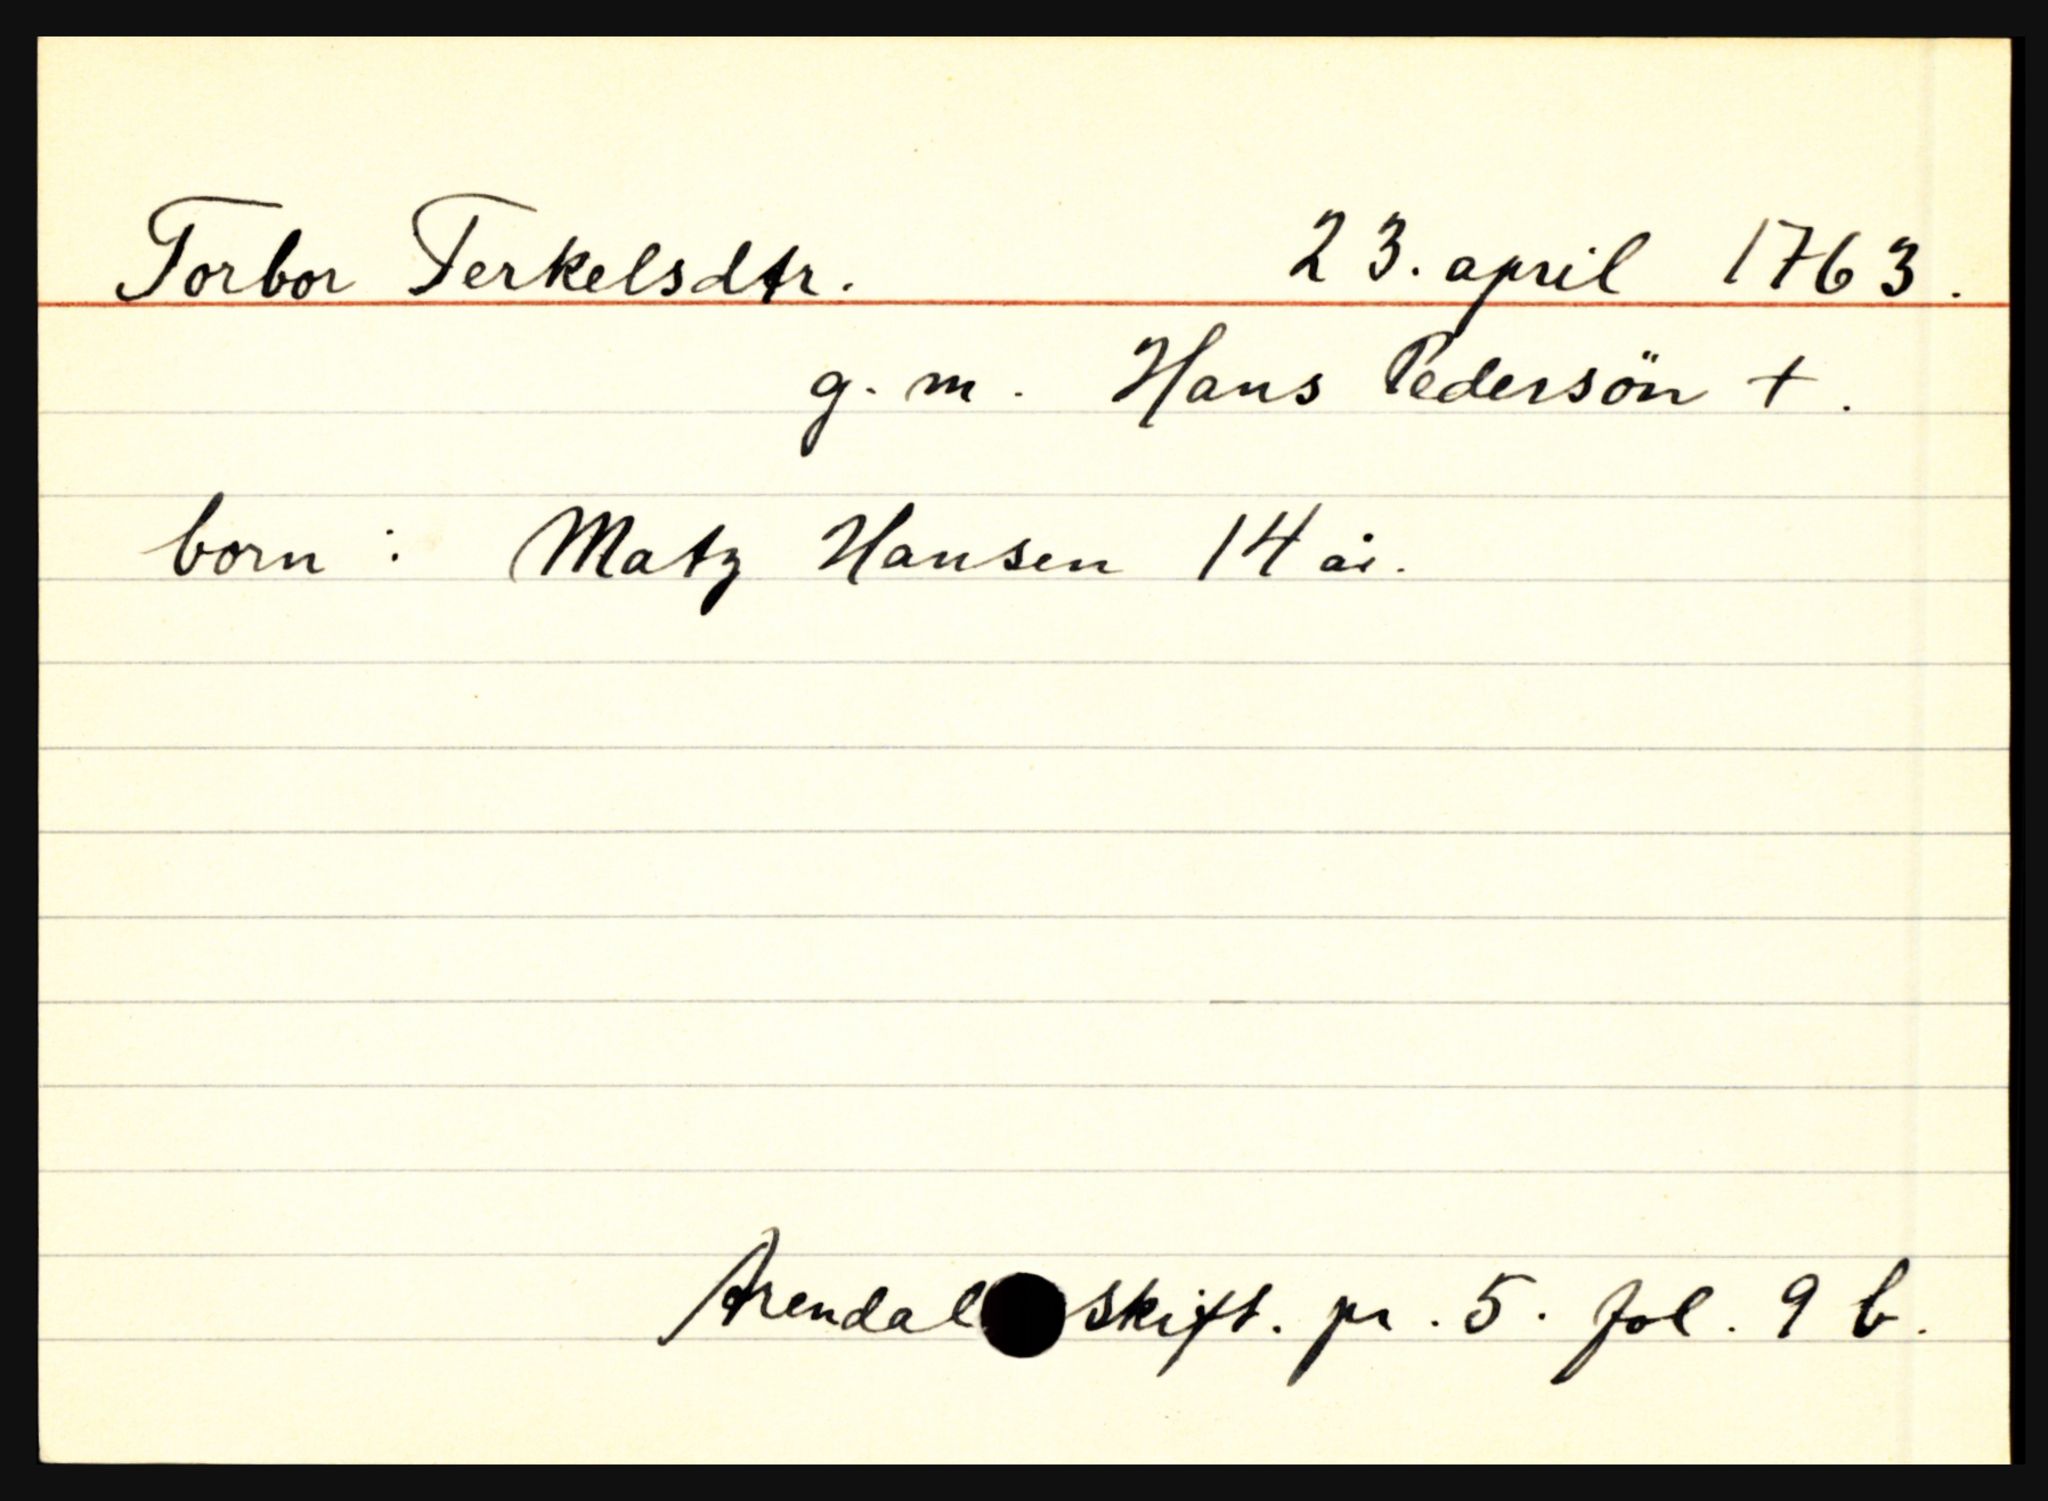 Torbor Terkelsdtr. 23. april 1763.
g. m. Hans Pedersön +.
born: Matz Hansen 14 år.
Arendal skift. pr. 5. fol. 9 b.